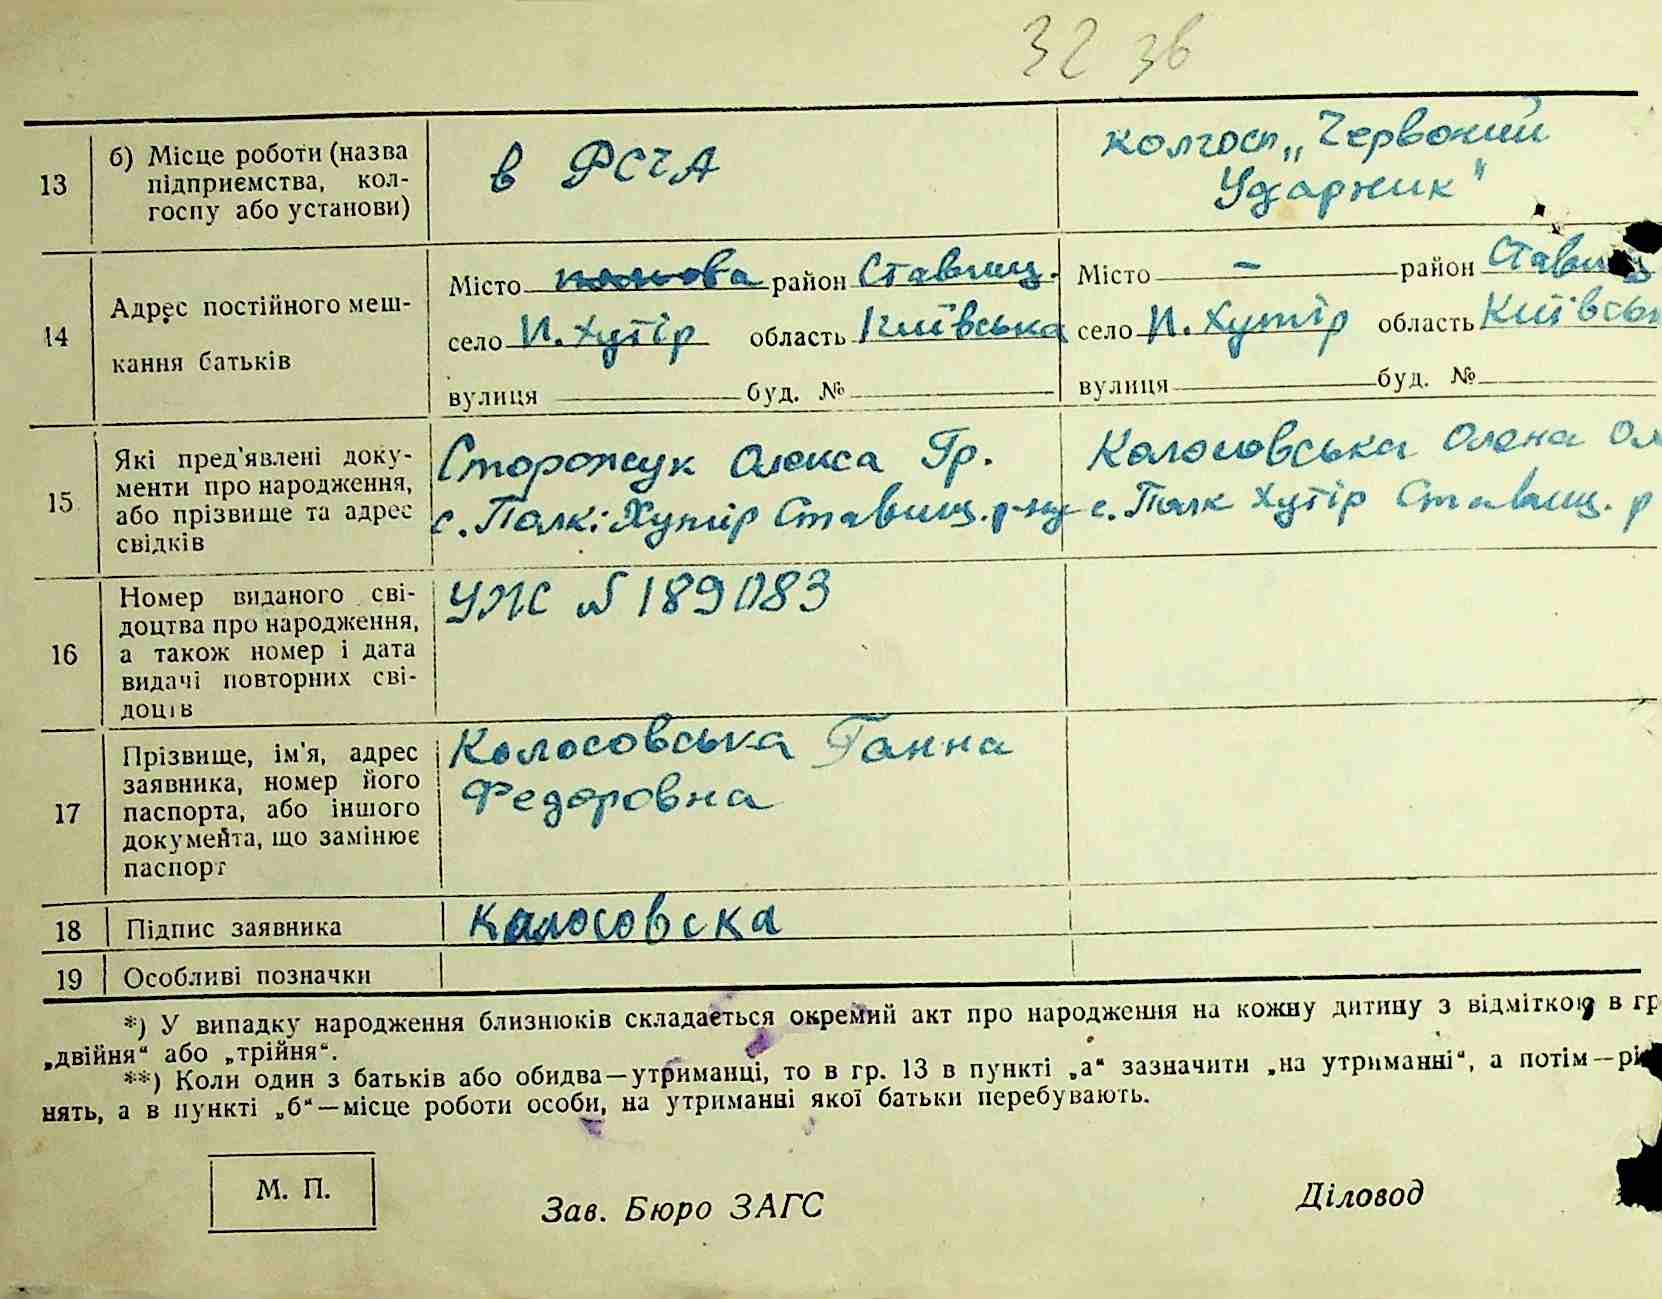 32 зв
13
б) Місце роботи (назва
підприємства, кол-
госпу або установи)
в РСЧА
колгосп „Червоний
Ударник"
14
Адрес постійного меш-
кання батьків
Місто район Ставищ.
село П. Хутір область Київська
вулиця буд. №
Місто – район Ставищ
село П. Хутір область Київськ
вулиця буд. №
15
Які пред'явлені доку-
менти про народження,
або прізвище та адрес
свідків
Сторожук Олекса Гр.
с. Полк: Хутір Ставищ. р-ну
Колосовська Олена Ол
с. Полк Хутір Ставищ. р
16
Номер виданого сві-
доцтва про народження,
а також номер і дата
видачі повторних сві-
доців
УЖС № 189083
17
Прізвище, ім'я, адрес
заявника, номер його
паспорта, або іншого
документа, що замінює
паспорт
Колосовська Ганна
Федоровна
18
Підпис заявника
Колосовска
19
Особливі позначки
*) У випадку народження близнюків складається окремий акт про народження на кожну дитину з відміткою в гр
„двійня“ або „трійня“.
**) Коли один з батьків або обидва—утриманці, то в гр. 13 в пункті „а“ зазначити „на утриманні“, а потім—рі
нять, а в пункті „б“—місце роботи особи, на утриманні якої батьки перебувають.
М. П.
Зав. Бюро ЗАГС
Діловод